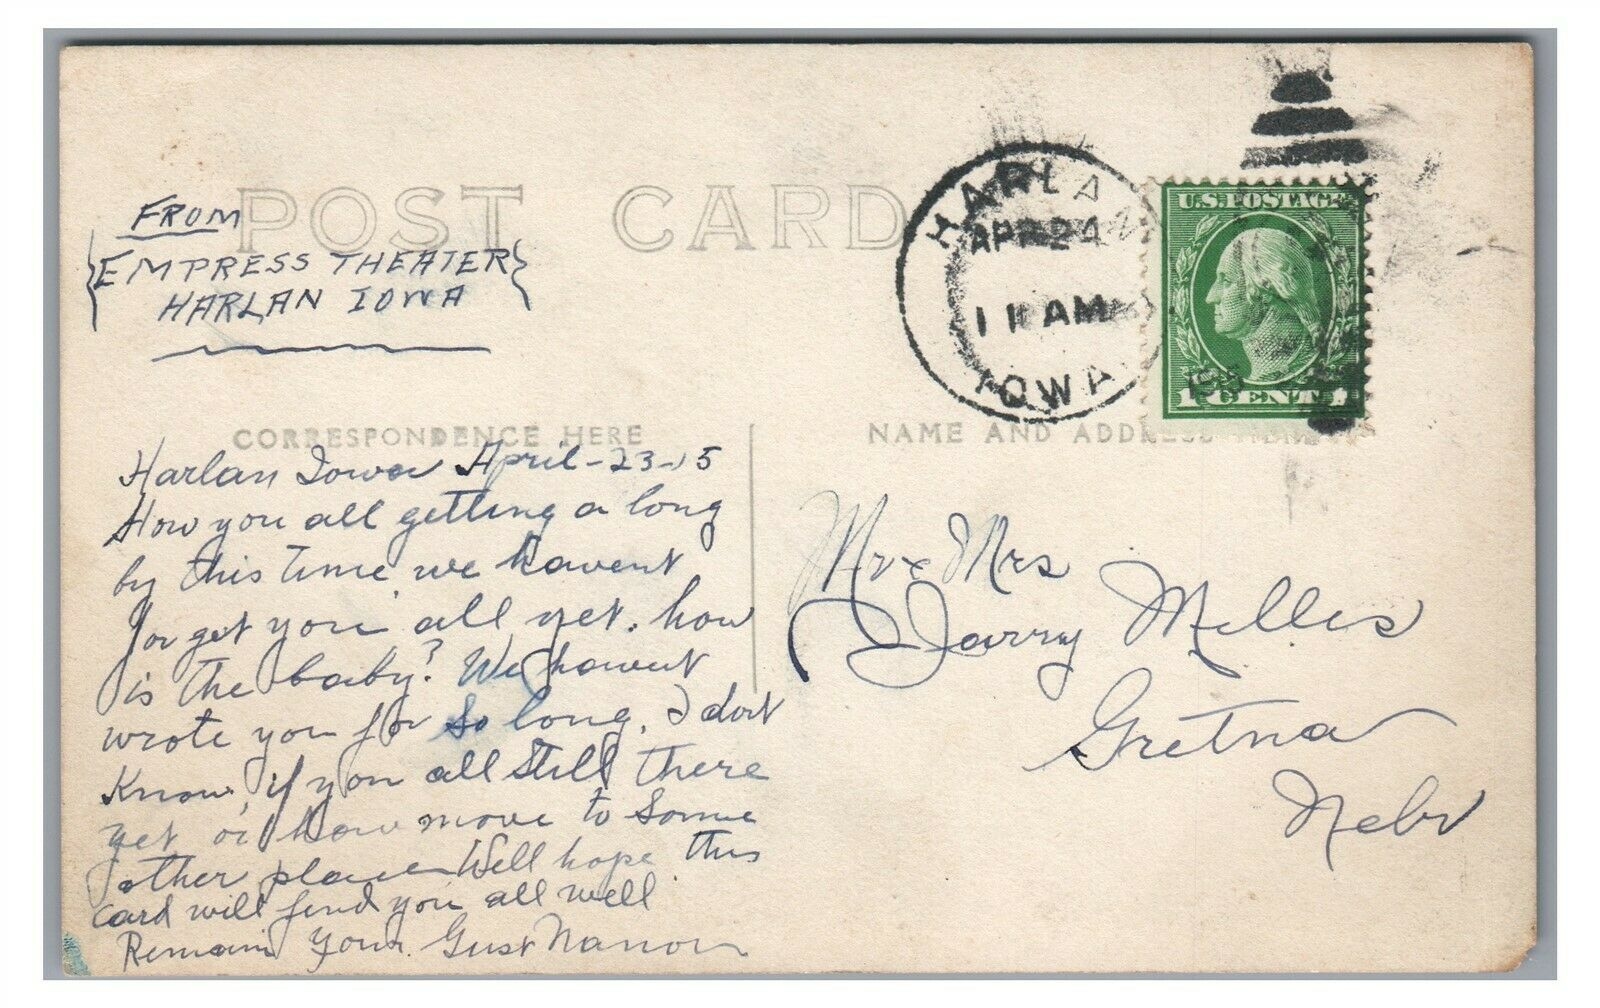 POST CARD
FROM
EMPRESS THEATER
HARLAN IOWA
HARLAN
APR 24
11 AM
IOWA
U.S. POSTAGE
1 CENT 1
CORRESPONDENCE HERE
NAME AND ADDRESS HERE
Harlan Iowa April-23-15
How you all getting a long
by this time we havent
for get you all yet. how
is the baby? We havent
wrote you for so long, I dont
Know if you all still there
yet or have move to some
other place Well hope this
card will find you all well
Remain Your Gust
Mr & Mrs
Harry Milles
Gretna
Nebr